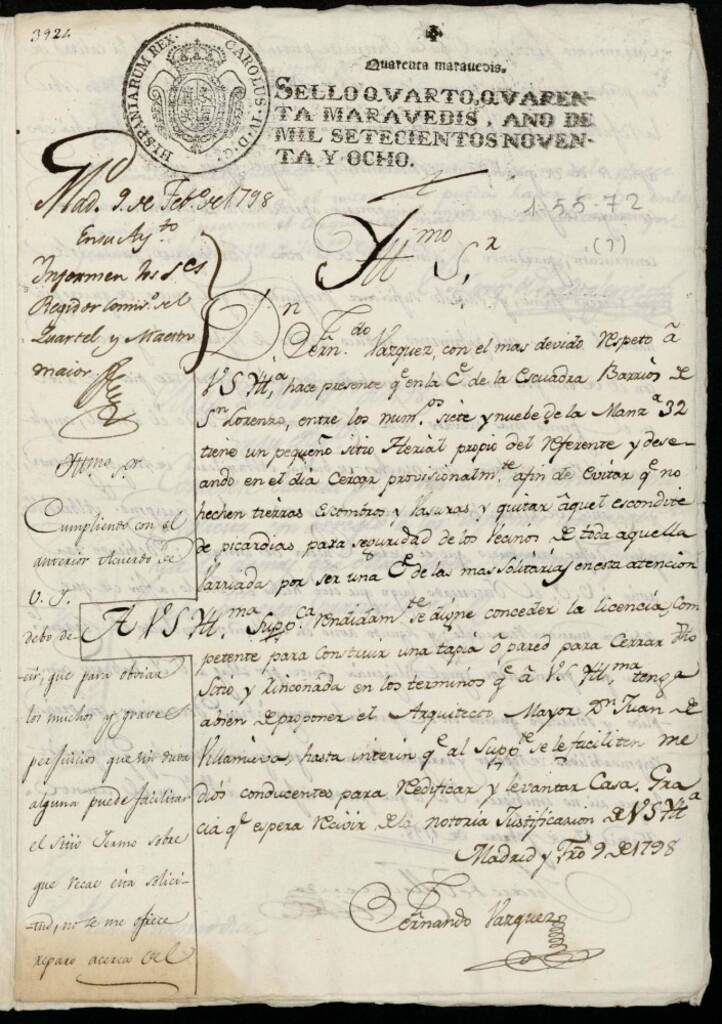 392.
HISPANIARUM REX. CAROLUS. IV. D. G.
Quarenta maravedis.
SELLO QVARTO, QVAREN-
TA MARAVEDIS, AÑO DE
MIL SETECIENTOS NOVEN-
TA Y OCHO.
1-55-72
(1)
Mad. 9. de Feb.o de 1798
En su Ay.to
Informen los S.res
Regidor Comis.o del
Quartel y Maestro
maior
Yll.mo S.r
D.n Fern.do Vazquez, con el mas devido respeto â
V S Yll.a, hace presente q.e en la C.e de la Escuadra Barrio de
S.n Lorenzo, entre los num.os siete y nuebe de la Manz.a 32
tiene un pequeño sitio Herial propio del referente y dese-
ando en el dia Cercar provisionalm.te afin de evitar q.e no
hechen tierras Escombros y vasuras y quitar âquel escondite
de picardias para seguridad de los Vecinos de toda aquella
varriada por ser una C.e de las mas solitarias en esta atencion
A V S Yll.ma Supp.ca rendidam.te se digne conceder la licencia Com
petente para Construir una tapia ô pared para Cerrar dho
Sitio y Rinconada en los terminos q.e â V. S. Yll.ma tenga
abien de proponer el Arquitecto Mayor D.n Juan de
Villanueva, hasta interin q.e al Supp.te se le faciliten me
dios conducentes para Redificar y levantar Casa. Gra
cia q.e espera recivir de la notoria Justificacion de V S Yll.a
Madrid y Fro 9 de 1798
Fernando Vazquez
Yll.mo S.or
Cumpliendo con el
anterior Acuerdo de
V. S.
debo de
cir, que para obviar
los muchos y graves
perjuicios que sin duda
alguna puede facilitar
el sitio Yermo sobre
que recae esta solici-
tud, no se me ofrece
reparo acerca de el